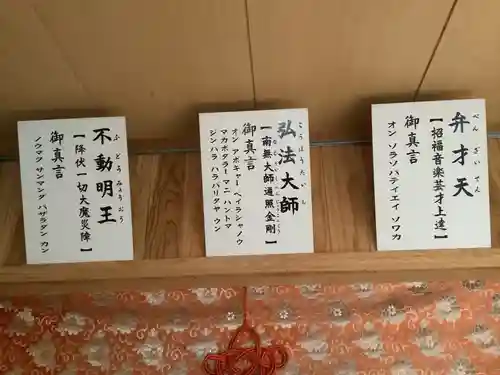 べんざいせん
弁才天
【招福音楽芸才上達】
御真言
オン ソラソバテイエイ ソワカ
こうぼうだいし
弘法大師
【南無大師遍照金剛】
御真言
オン アボキャー ベイラシャノウ
マカボダラーマニ ハントマ
ジンバラ ハラバリタヤ ウン
ふどうみょうおう
不動明王
【降伏一切大魔災障】
御真言
ノウマク サンマンダ バザラダン カン